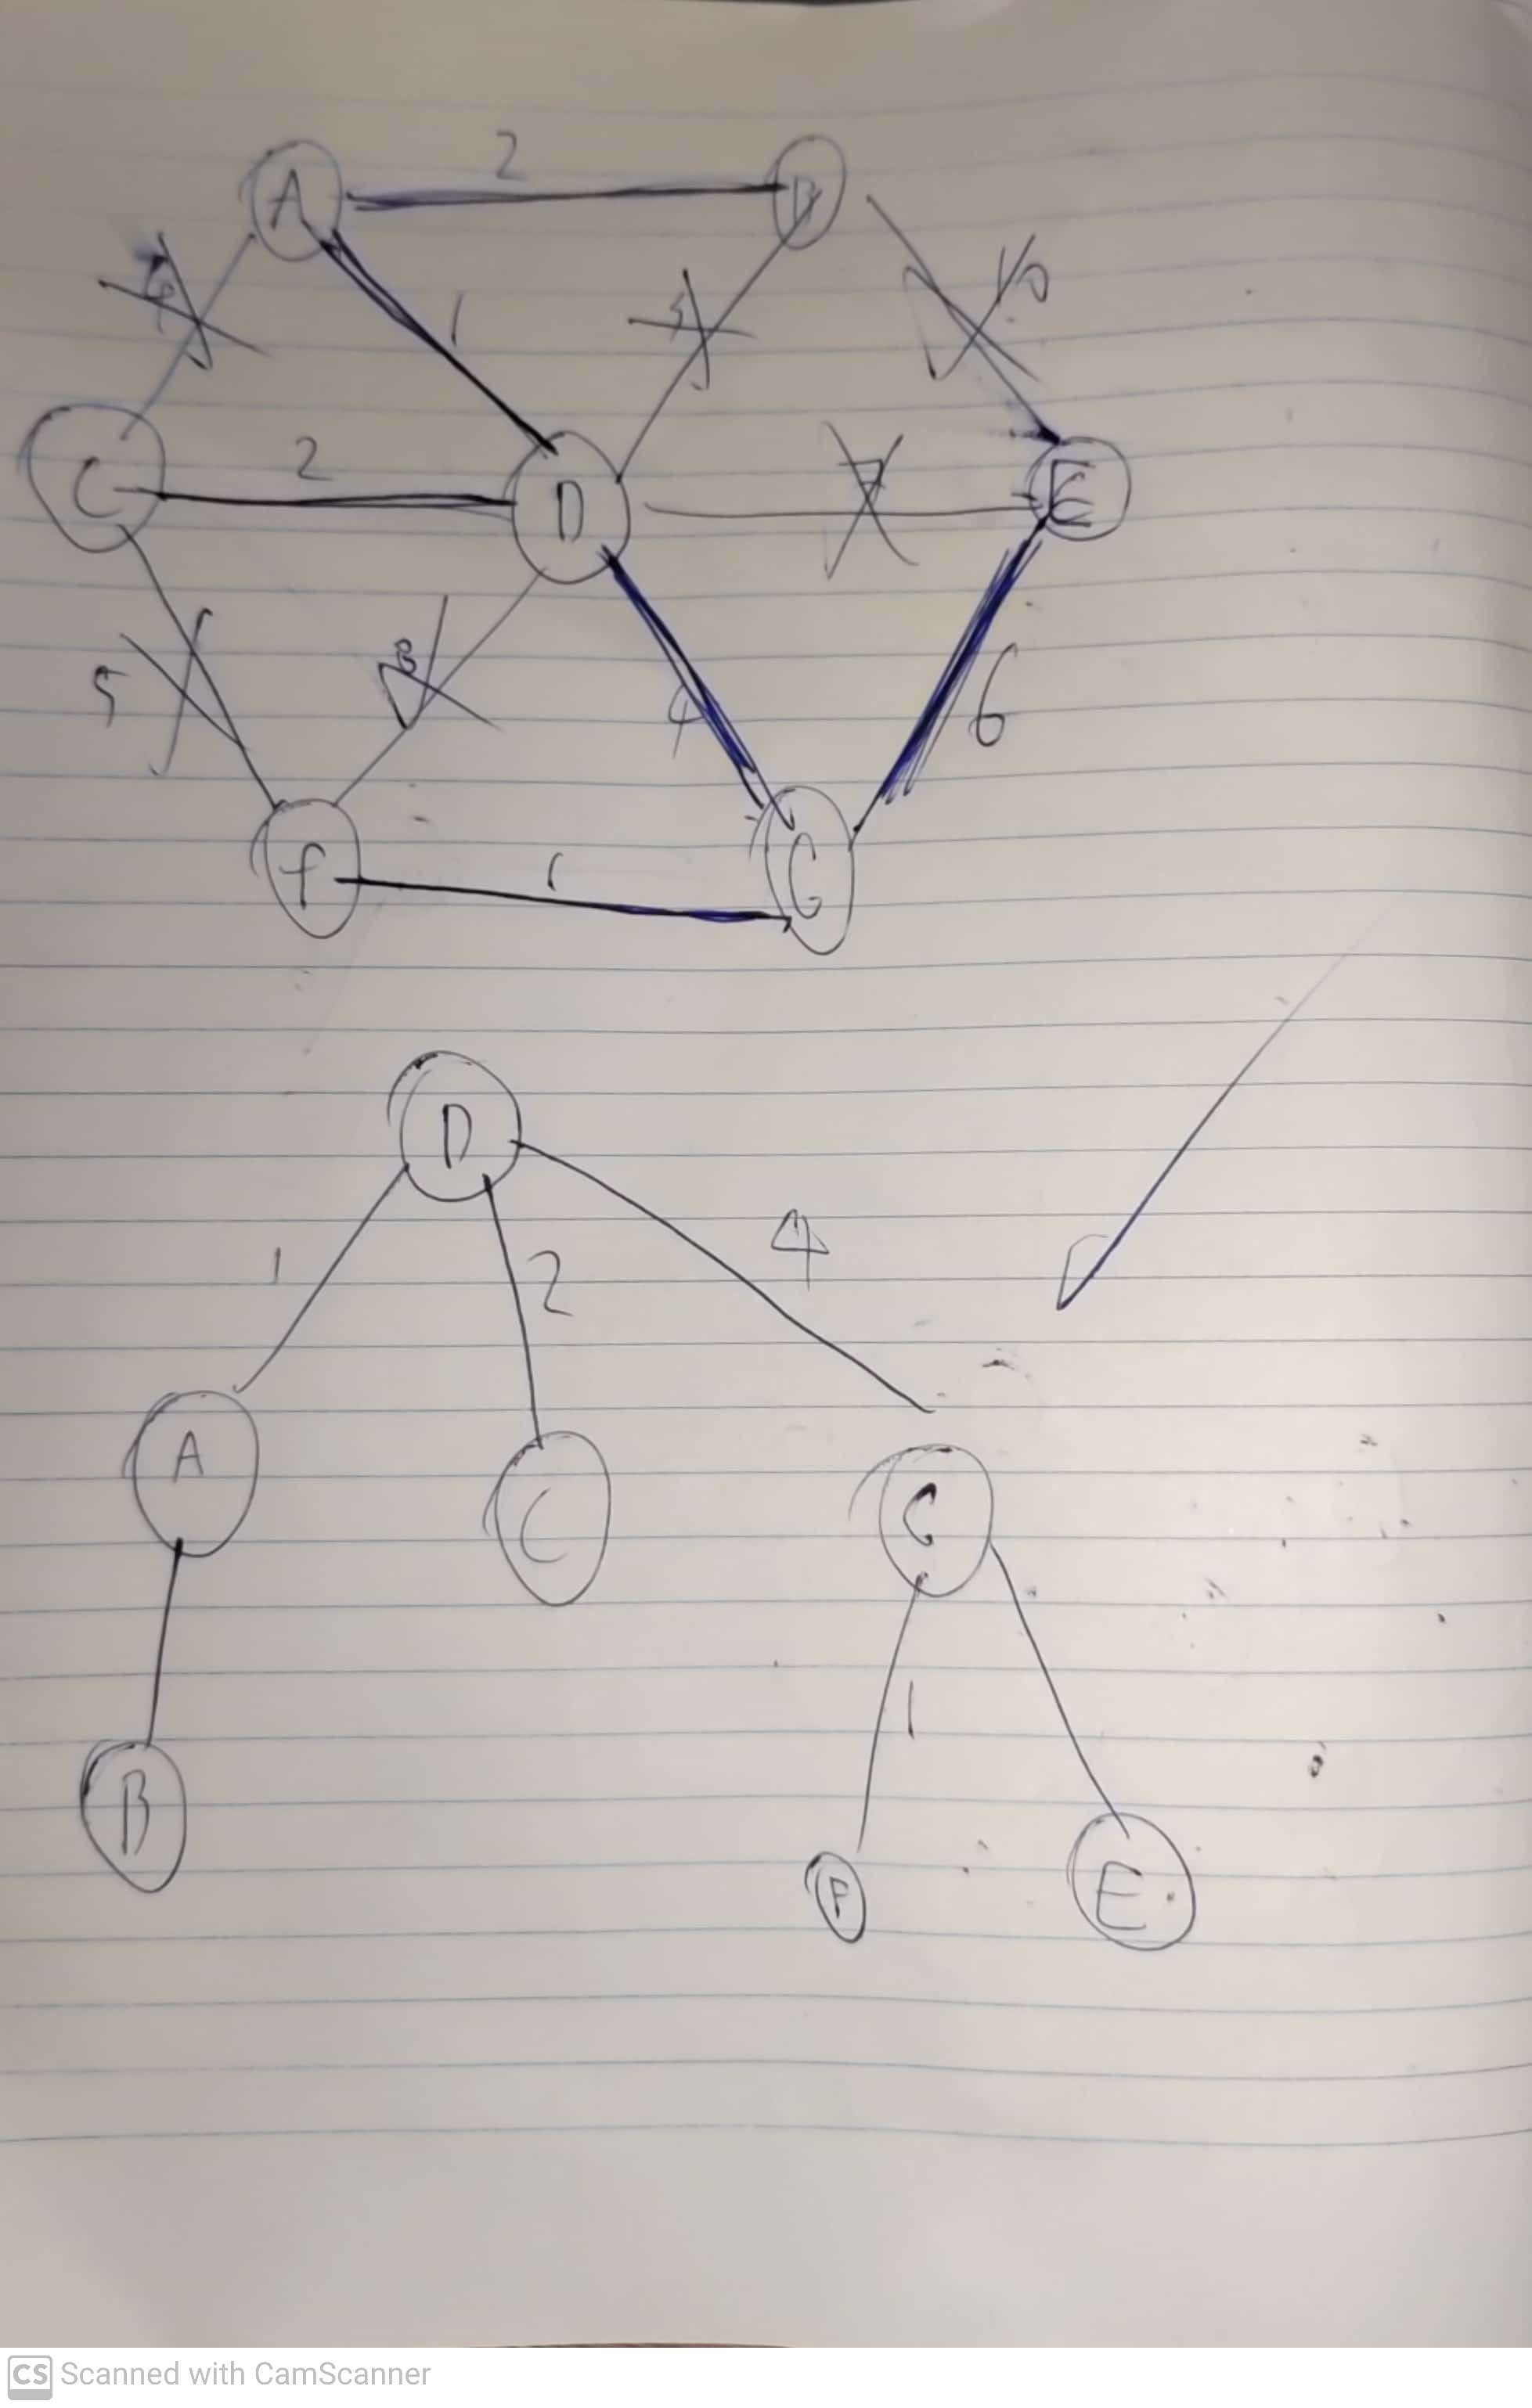 2
A B
1
10
2
C D E
7
5
8
4
6
f G
1
D
1
2
4
A
C
G
1
B
F
E
CS Scanned with CamScanner